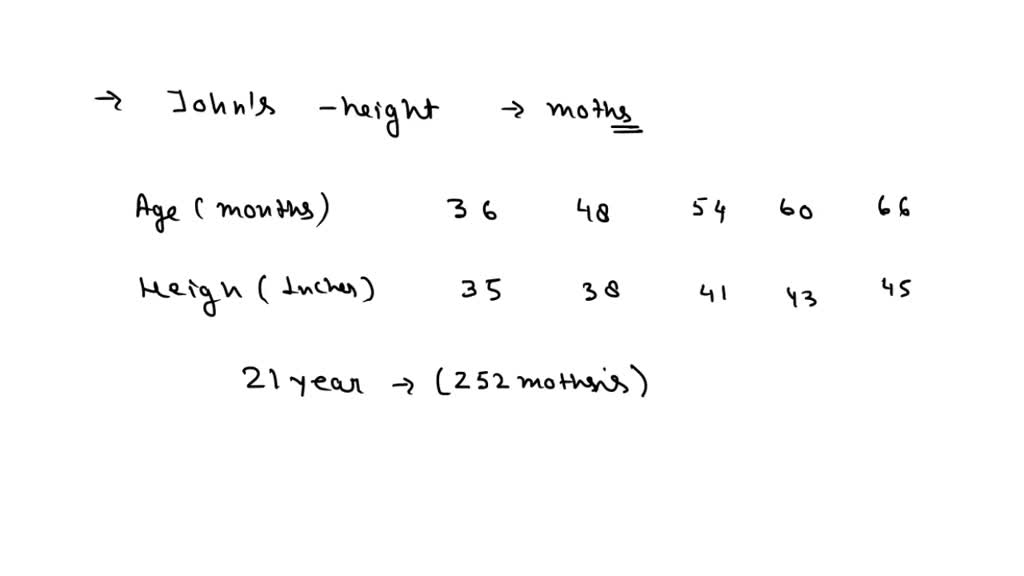 → John's - height → moths
Age (months) 36 48 54 60 66
Heign (Inches) 35 38 41 43 45
21 year → (252 mothsis)